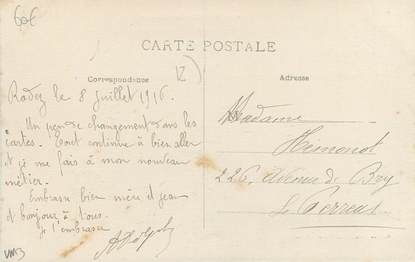 60€
CARTE POSTALE
Correspondance
Adresse
Rodez le 8 juillet 1916.
Un peu de changement dans les
cartes. Tout continue à bien aller
et je me fais à mon nouveau
métier.
Embrasse bien mère et jean
et bonjour à tous.
Je t'embrasse
Adolphe
Madame
Hemonot
226 Avenue de Bry
Le Perreux